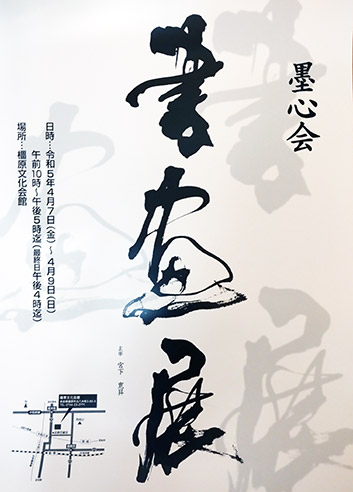 墨心会
書画展
日時…令和5年4月7日(金)~4月9日(日)
午前10時~午後5時迄(最終日午後4時迄)
場所…橿原文化会館
主宰 宮下 恵昇
橿原文化会館